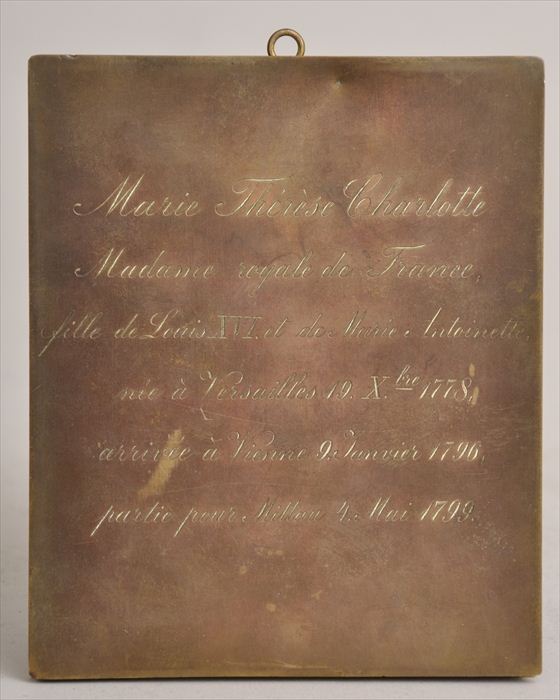 Marie Thérèse Charlotte
Madame royale de France,
fille de Louis XVI. et de Marie Antoinette,
née à Versailles 19. X.bre 1778,
arrivée à Vienne 9. Janvier 1796,
partie pour Mittau 4. Mai 1799.